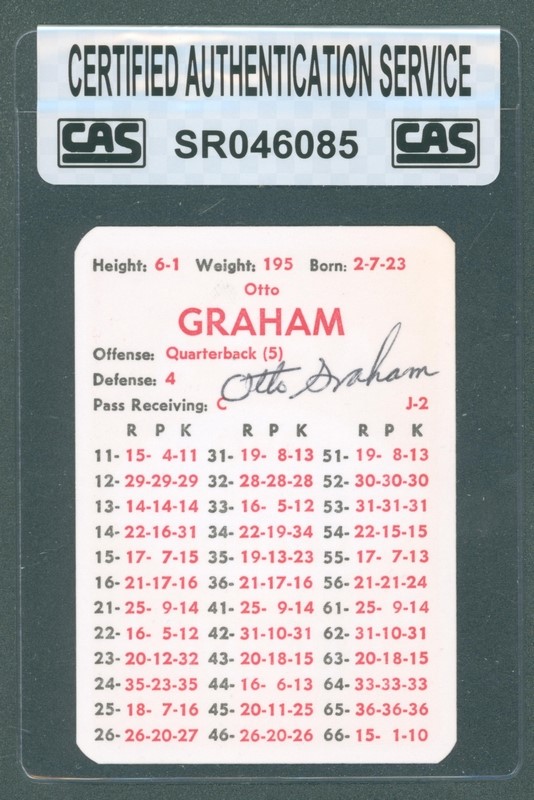 CERTIFIED AUTHENTICATION SERVICE
CAS SR046085 CAS
Height: 6-1 Weight: 195 Born: 2-7-23
Otto
GRAHAM
Offense: Quarterback (5)
Defense: 4 Otto Graham
Pass Receiving: C J-2
R P K R P K R P K
11- 15- 4-11 31- 19- 8-13 51- 19- 8-13
12- 29-29-29 32- 28-28-28 52- 30-30-30
13- 14-14-14 33- 16- 5-12 53- 31-31-31
14- 22-16-31 34- 22-19-34 54- 22-15-15
15- 17- 7-15 35- 19-13-23 55- 17- 7-13
16- 21-17-16 36- 21-17-16 56- 21-21-24
21- 25- 9-14 41- 25- 9-14 61- 25- 9-14
22- 16- 5-12 42- 31-10-31 62- 31-10-31
23- 20-12-32 43- 20-18-15 63- 20-18-15
24- 35-23-35 44- 16- 6-13 64- 33-33-33
25- 18- 7-16 45- 20-11-25 65- 36-36-36
26- 26-20-27 46- 26-20-26 66- 15- 1-10